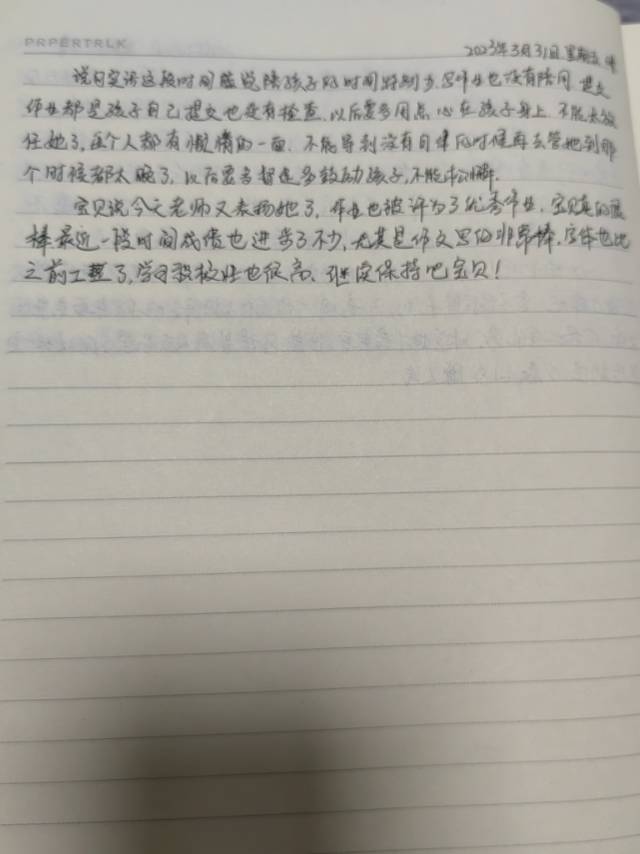 PRPERTRLK
2023年3月31日 星期五 晴
说句实话这段时间陪孩子的时间特别少,写作业也没有陪同,提交
作业都是孩子自己提交也没有检查,以后要多用点心在孩子身上,不能太放
任她了,每个人都有懒惰的一面,不能等到没有自律的时候再去管她到那
个时候都太晚了,以后要多督促多鼓励孩子,不能松懈.
宝贝说今天老师又表扬她了,作业也被评为了优秀作业,宝贝真的很
棒最近一段时间成绩也进步了不少,尤其是作文写的非常棒,字体也比
之前工整了,学习积极性也很高、继续保持吧宝贝!